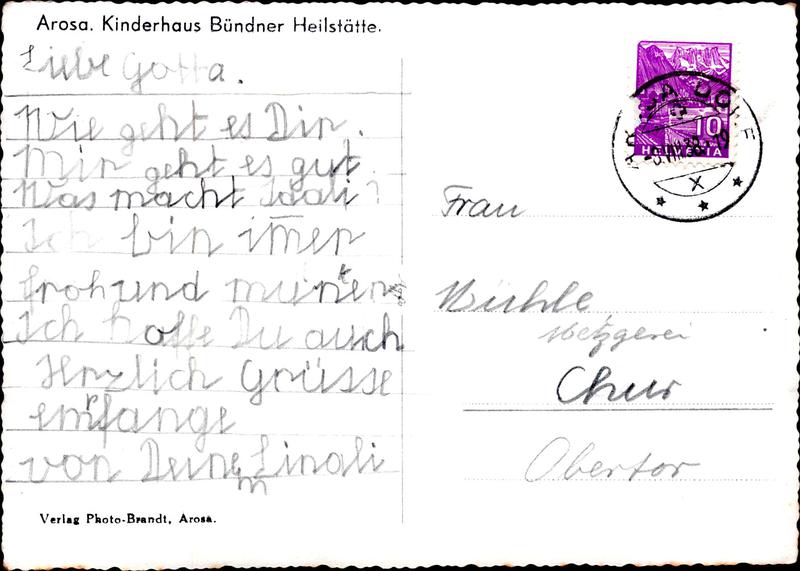 Arosa. Kinderhaus Bündner Heilstätte.
Liebe Gotta.
Wie geht es Dir.
Mir geht es gut.
Was macht
Ich bin im̅er
froh und munter
Ich hoffe Du auch
Herzlich Grüsse
emfange
von Deinem Linali
Verlag Photo-Brandt, Arosa.
10
HELVETIA
AROSA DORF
Frau
Kühle
Metzgerei
Chur
Obertor